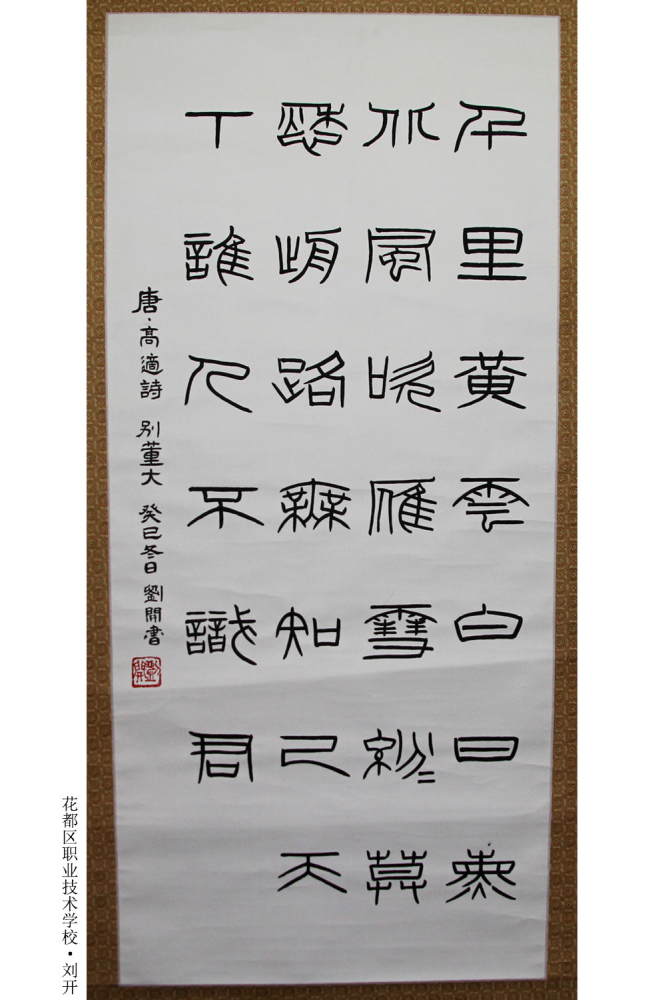 千里黄雲白日熏
北風吹雁雪紛〻莫
愁前路無知己天
下誰人不識君
唐·高適詩 别董大 癸巳冬日 劉開書
劉開
花都区职业技术学校·刘开